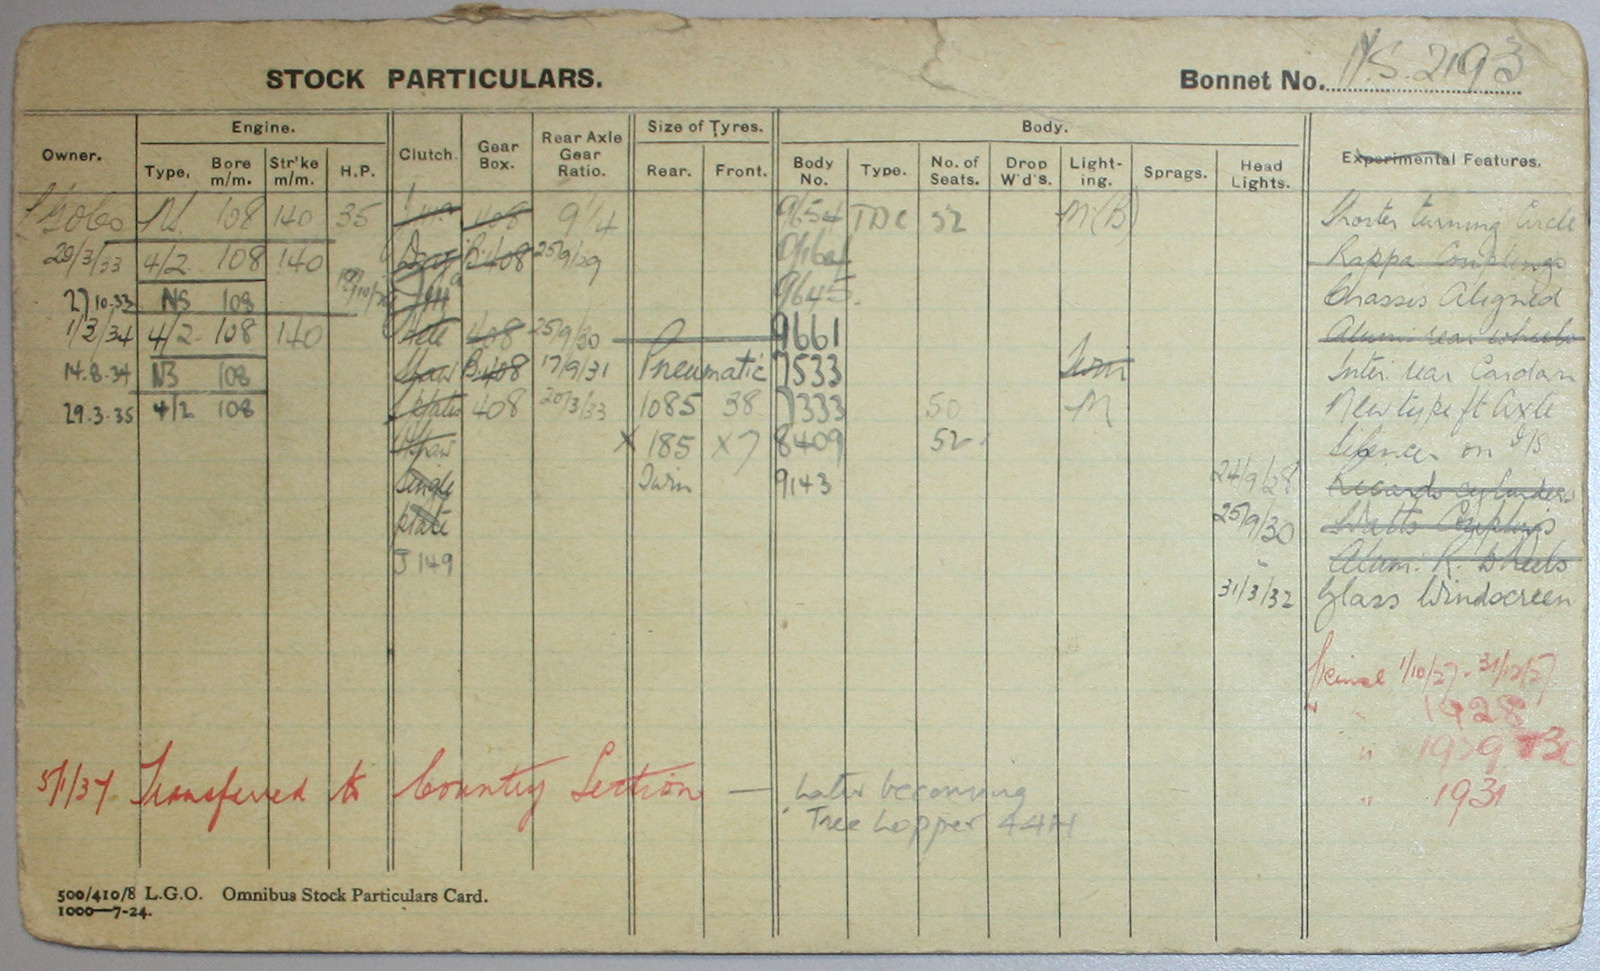 STOCK PARTICULARS.
Bonnet No. N.S. 2193
Owner. Engine. Clutch. Gear Box. Rear Axle Gear Ratio. Size of Tyres. Body. Experimental Features.
Type. Bore m/m. Str'ke m/m. H.P. Rear. Front. Body No. Type. No. of Seats. Drop W'd's. Light-ing. Sprags. Head Lights.
LGOCo NS. 108 140 35 408 9¼ 9654 TDC 52 M(B) Shorter turning Circle
29/3/33 4/2 108 140 B.408 25/9/29 Kappa Couplings
27.10.33 NS 108 9645. Chassis Aligned
1/3/34 4/2 108 140 408 25/9/30 9661 Alum. rear wheels
14.8.34 NS 108 B.408 17/9/31 Pneumatic 7533 Inter. rear Cardan
29.3.35 4/2 108 408 20/3/33 1085 38 7333 50 M New type ft Axle
x 185 x7 8409 52 Silencer on
Single Twin 9143 24/9/28 Ricardo cylinders
plate 25/9/30 Watts Couplings
J149 " Alum. R. Wheels
31/3/32 Glass Windscreen
1/10/27 - 31/12/27
" 1928
" 1929 + 30
" 1931
5/1/37 Transferred to Country Section — Later becoming
Tree Lopper 44H
500/410/8 L.G.O. Omnibus Stock Particulars Card.
1000—7-24.